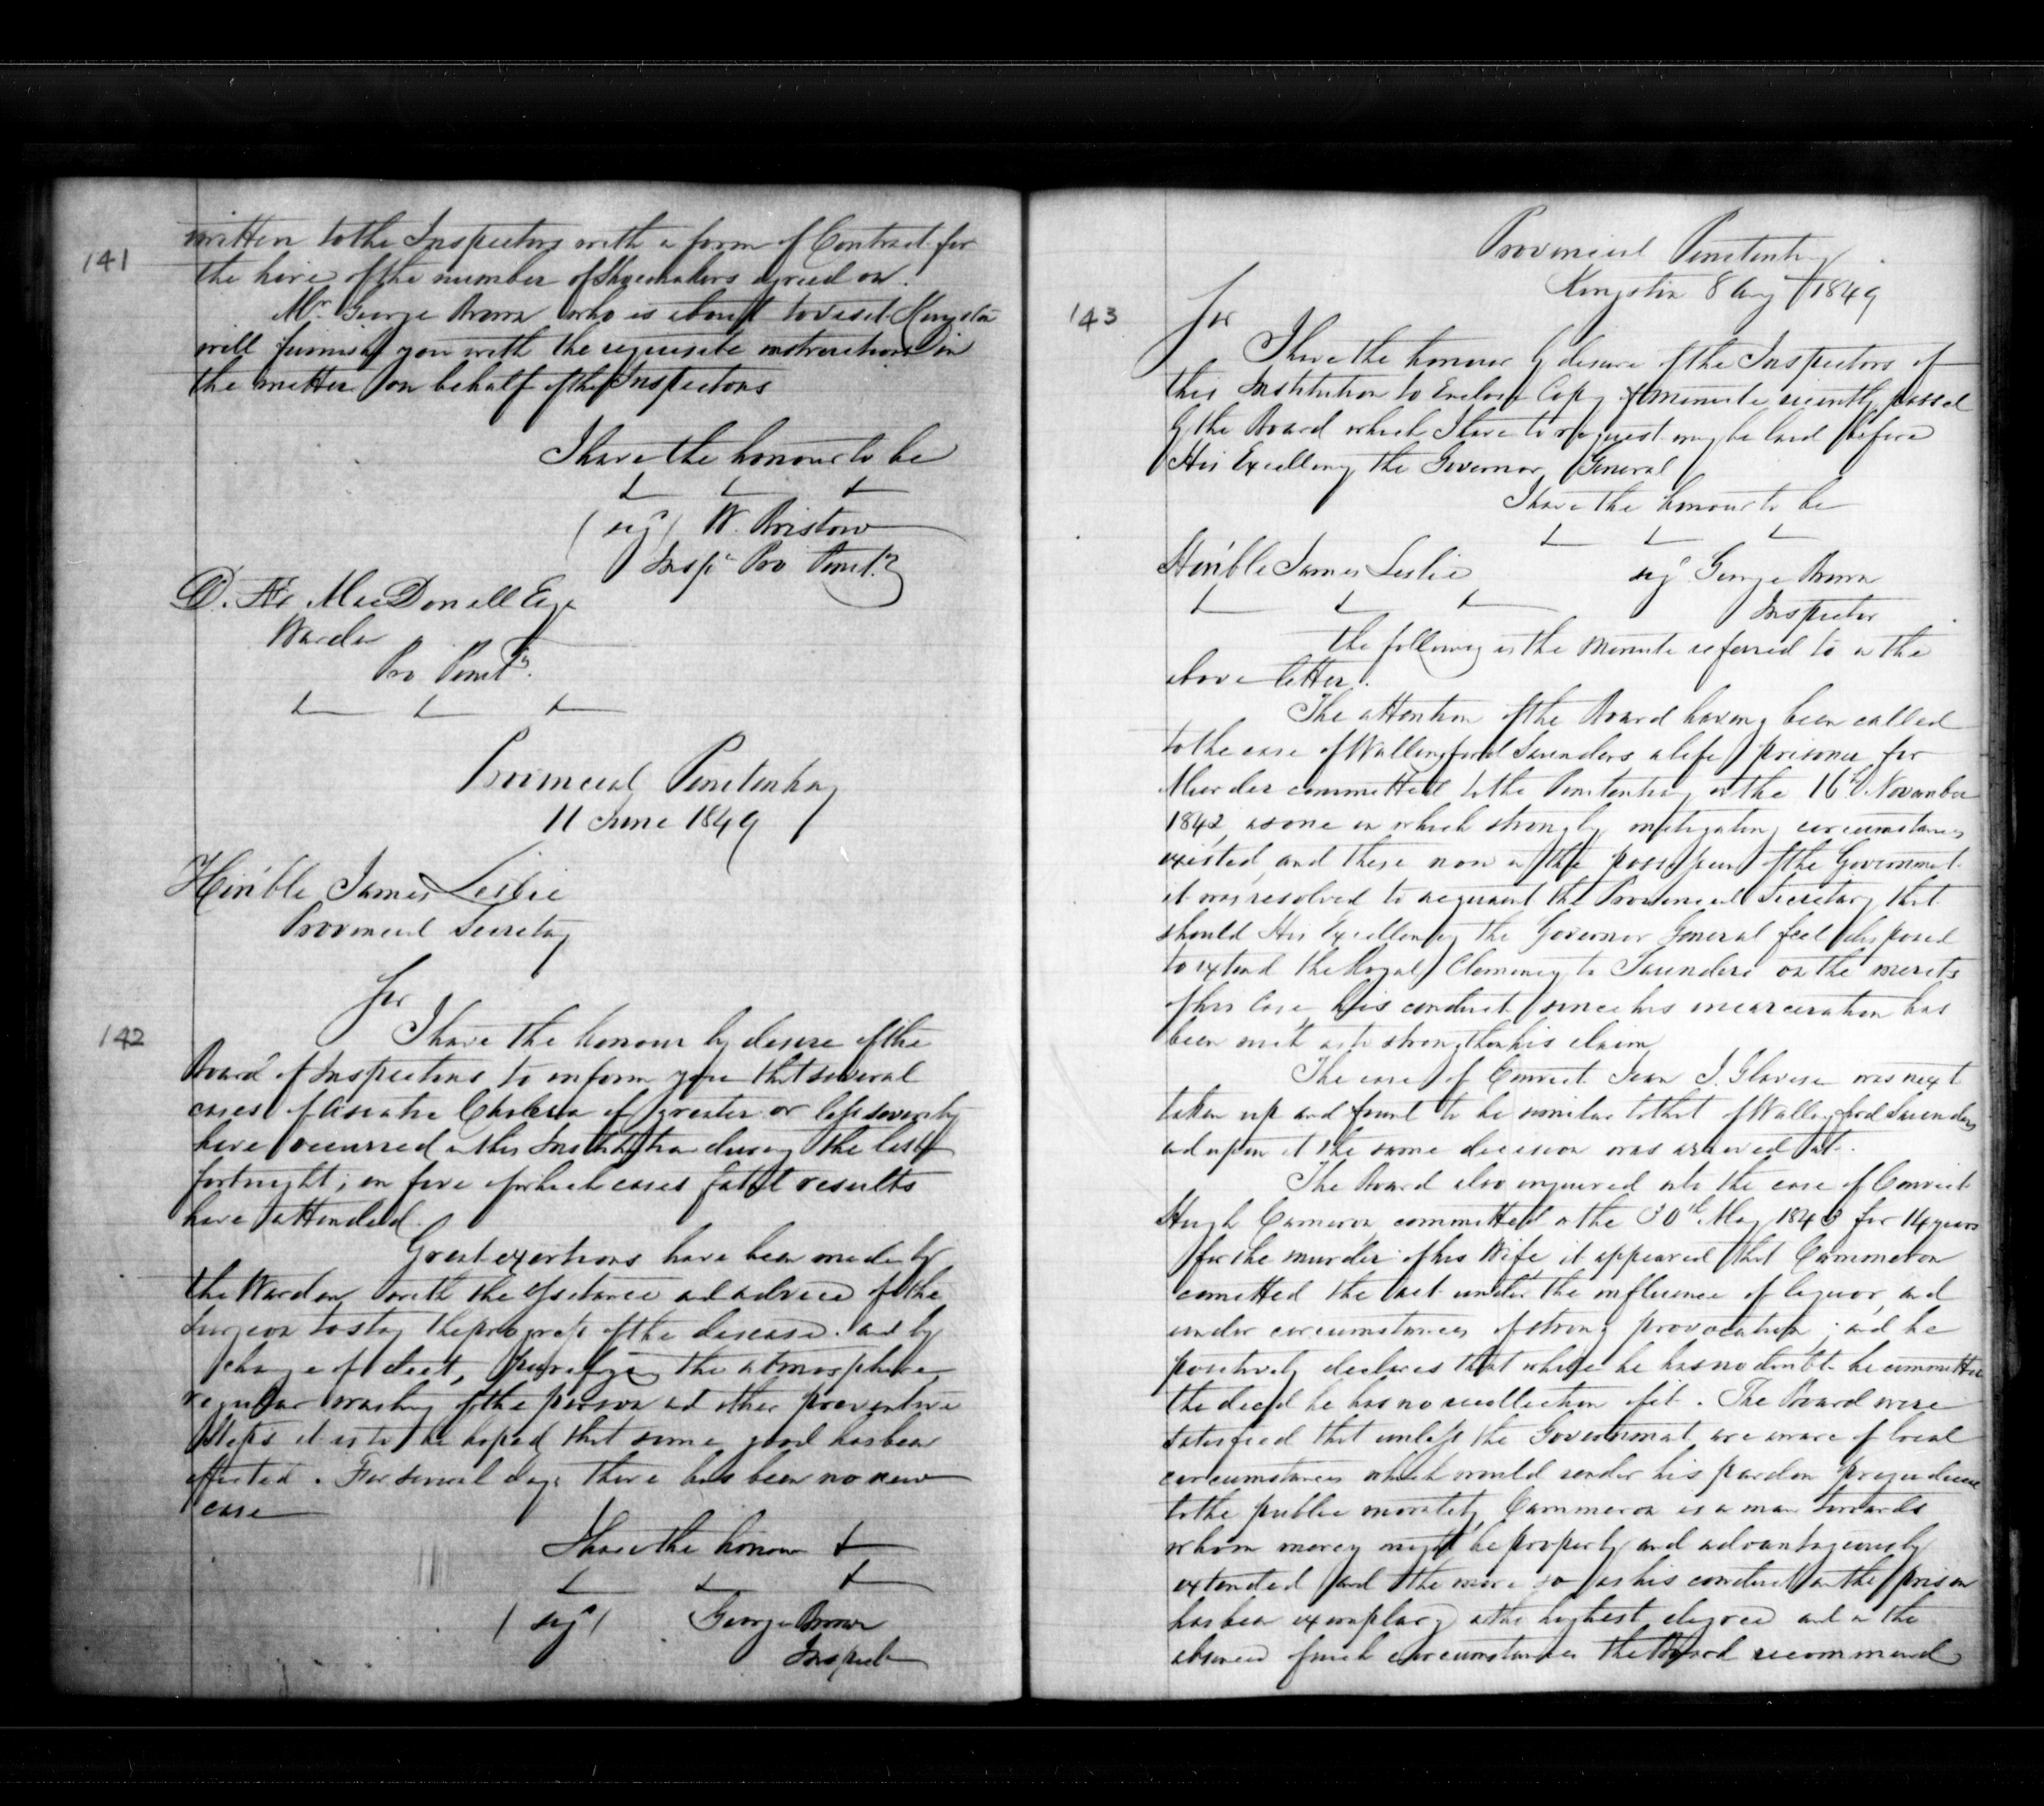 141
written to the Inspectors with a form of Contract for
the hire of the number of Shoemakers agreed on.
Mr George Brown who is about to visit Kingston
will furnish you with the requisite instructions in
the matter on behalf of the Inspectors
I have the honour to be
(sigd) W. Bristow
Inspr Pro Penity
D. Æ MacDonell Esqr
Warden
Pro Penity
Provincial Penitentiary
11 June 1849
Hon'ble James Leslie
Provincial Secretary
142
Sir
I have the honour by desire of the
Board of Inspectors to inform you that several
cases of Asiatic Cholera of greater or less severity
have occurred in this Institution during the last
fortnight; in five of which cases fatal results
have attended.
Great exertions have been made by
the Warden with the assistance and advice of the
Surgeon to stay the progress of the disease. and by
change of diet, purifying the atmosphere
regular washing of the person and other preventive
steps it is to be hoped that some good has been
effected. For several days there has been no new
case
I have the honour
(sigd) George Brown
Inspect
Provincial Penitentiary
Kingston 8 Aug 1849
143
Sir
I have the honour by desire of the Inspectors of
this Institution to Enclose Copy of minute recently passed
by the Board which I have to request may be laid before
His Excellency the Governor General
I have the honour to be
Hon'ble James Leslie
sigd George Brown
Inspector
The following is the Minute referred to in the
above letter.
The attention of the Board having been called
to the case of Wallingford Saunders a life prisoner for
Murder committed to the Penitentiary on the 16th November
1842, as one in which strongly mitigating circumstances
existed, and these now in the possession of the Government
it was resolved to acquaint the Provincial Secretary that
should His Excellency the Governor General feel disposed
to extend the Royal Clemency to Saunders on the merits
of his Case, his conduct since his incarceration has
been such as to strengthen his claim
The case of Convict Jean J. was next
taken up and found to be similar to that of Wallingford Saunders
and upon it the same decision was arrived at.
The Board also enquired into the case of Convict
Hugh Cameron committed on the 30th May 1843 for 14 years
for the murder of his Wife, it appeared that Cammeron
comitted the act under the influence of liquor, and
under circumstances of strong provocation; and he
positively declares that while he has no doubt he committed
the deed he has no recollection of it. The Board were
satisfied that unless the Government are aware of local
circumstances which would render his pardon
to the public morality, Cammeron is a man towards
whom mercy might be properly and advantageously
extended and the more so as his conduct in the prison
has been exemplary in the highest degree and in the
absence of such circumstances the Board recommend